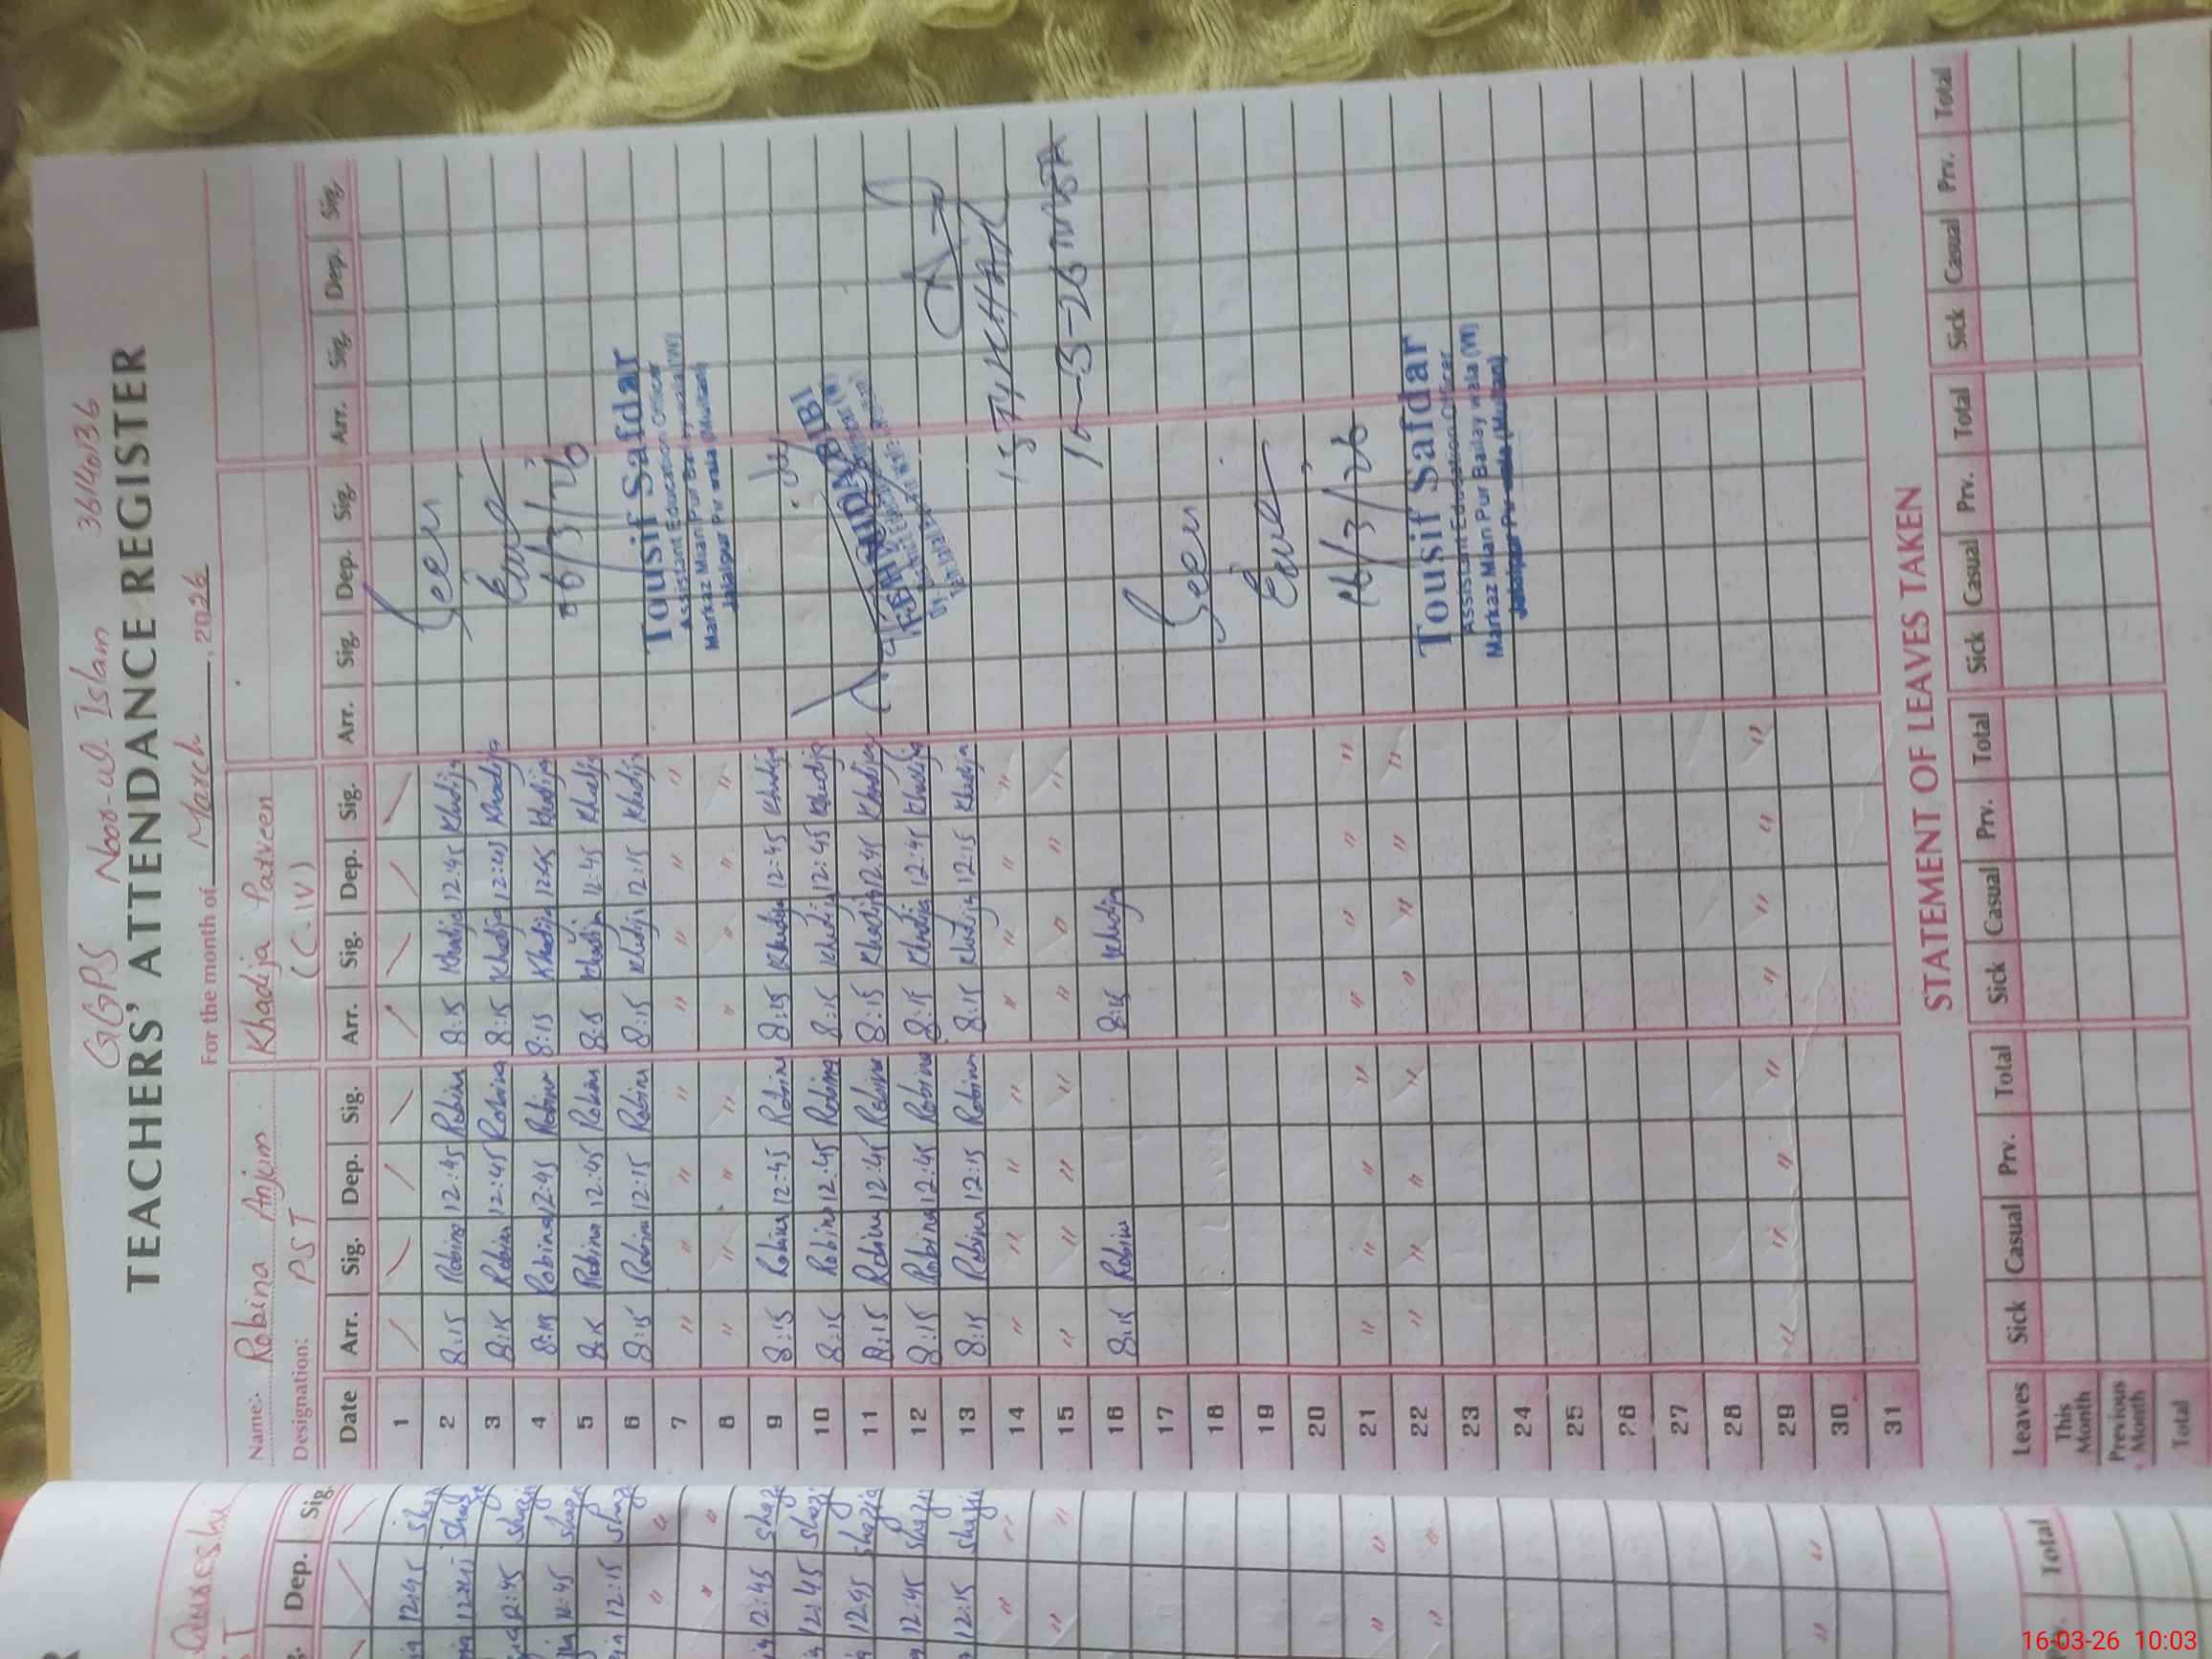 GGPS Noor-ul-Islam 36140136
TEACHERS' ATTENDANCE REGISTER
For the month of March, 2026
Name: Robina Anjum Khadija Parveen
Designation: PST (C-IV)
Date Arr. Sig. Dep. Sig. Arr. Sig. Dep. Sig. Arr. Sig. Dep. Sig. Arr. Sig. Dep. Sig.
1 / \ / \ / \ / \
2 8:15 Robina 12:45 Robina 8:15 Khadija 12:45 Khadija
3 8:15 Robina 12:45 Robina 8:15 Khadija 12:45 Khadija
4 8:15 Robina 12:45 Robina 8:15 Khadija 12:45 Khadija
5 8:15 Robina 12:45 Robina 8:15 Khadija 12:45 Khadija
6 8:15 Robina 12:15 Robina 8:15 Khadija 12:15 Khadija
7 " " " " " " " "
8 " " " " " " " "
9 8:15 Robina 12:45 Robina 8:15 Khadija 12:45 Khadija
10 8:15 Robina 12:45 Robina 8:15 Khadija 12:45 Khadija
11 8:15 Robina 12:45 Robina 8:15 Khadija 12:45 Khadija
12 8:15 Robina 12:45 Robina 8:15 Khadija 12:45 Khadija
13 8:15 Robina 12:15 Robina 8:15 Khadija 12:15 Khadija
14 " " " " " " " "
15 " " " " " " " "
16 8:15 Robina 8:15 Khadija
17
18
19
20
21 " " " " " " " "
22 " " " " " " " "
23
24
25
26
27
28
29 " " " " " " " "
30
31
Seen
06/3/26
Tousif Safdar
Assistant Education Officer
Markaz Mian Pur Bailay wala (W)
Jalalpur Pir wala (Multan)
BIBI
16-3-26
Seen
16/3/26
Tousif Safdar
Assistant Education Officer
Markaz Mian Pur Bailay wala (W)
Jalalpur Pir wala (Multan)
STATEMENT OF LEAVES TAKEN
Leaves Sick Casual Prv. Total Sick Casual Prv. Total Sick Casual Prv. Total Sick Casual Prv. Total
This Month
Previous Month
Total
Qureshi
Dep. Sig.
12:45
12:45
12:45
12:45
12:15
" "
" "
12:45
12:45
12:45 Shazia
12:45
12:15
" "
" "
" "
" "
"
Total
16-03-26 10:03